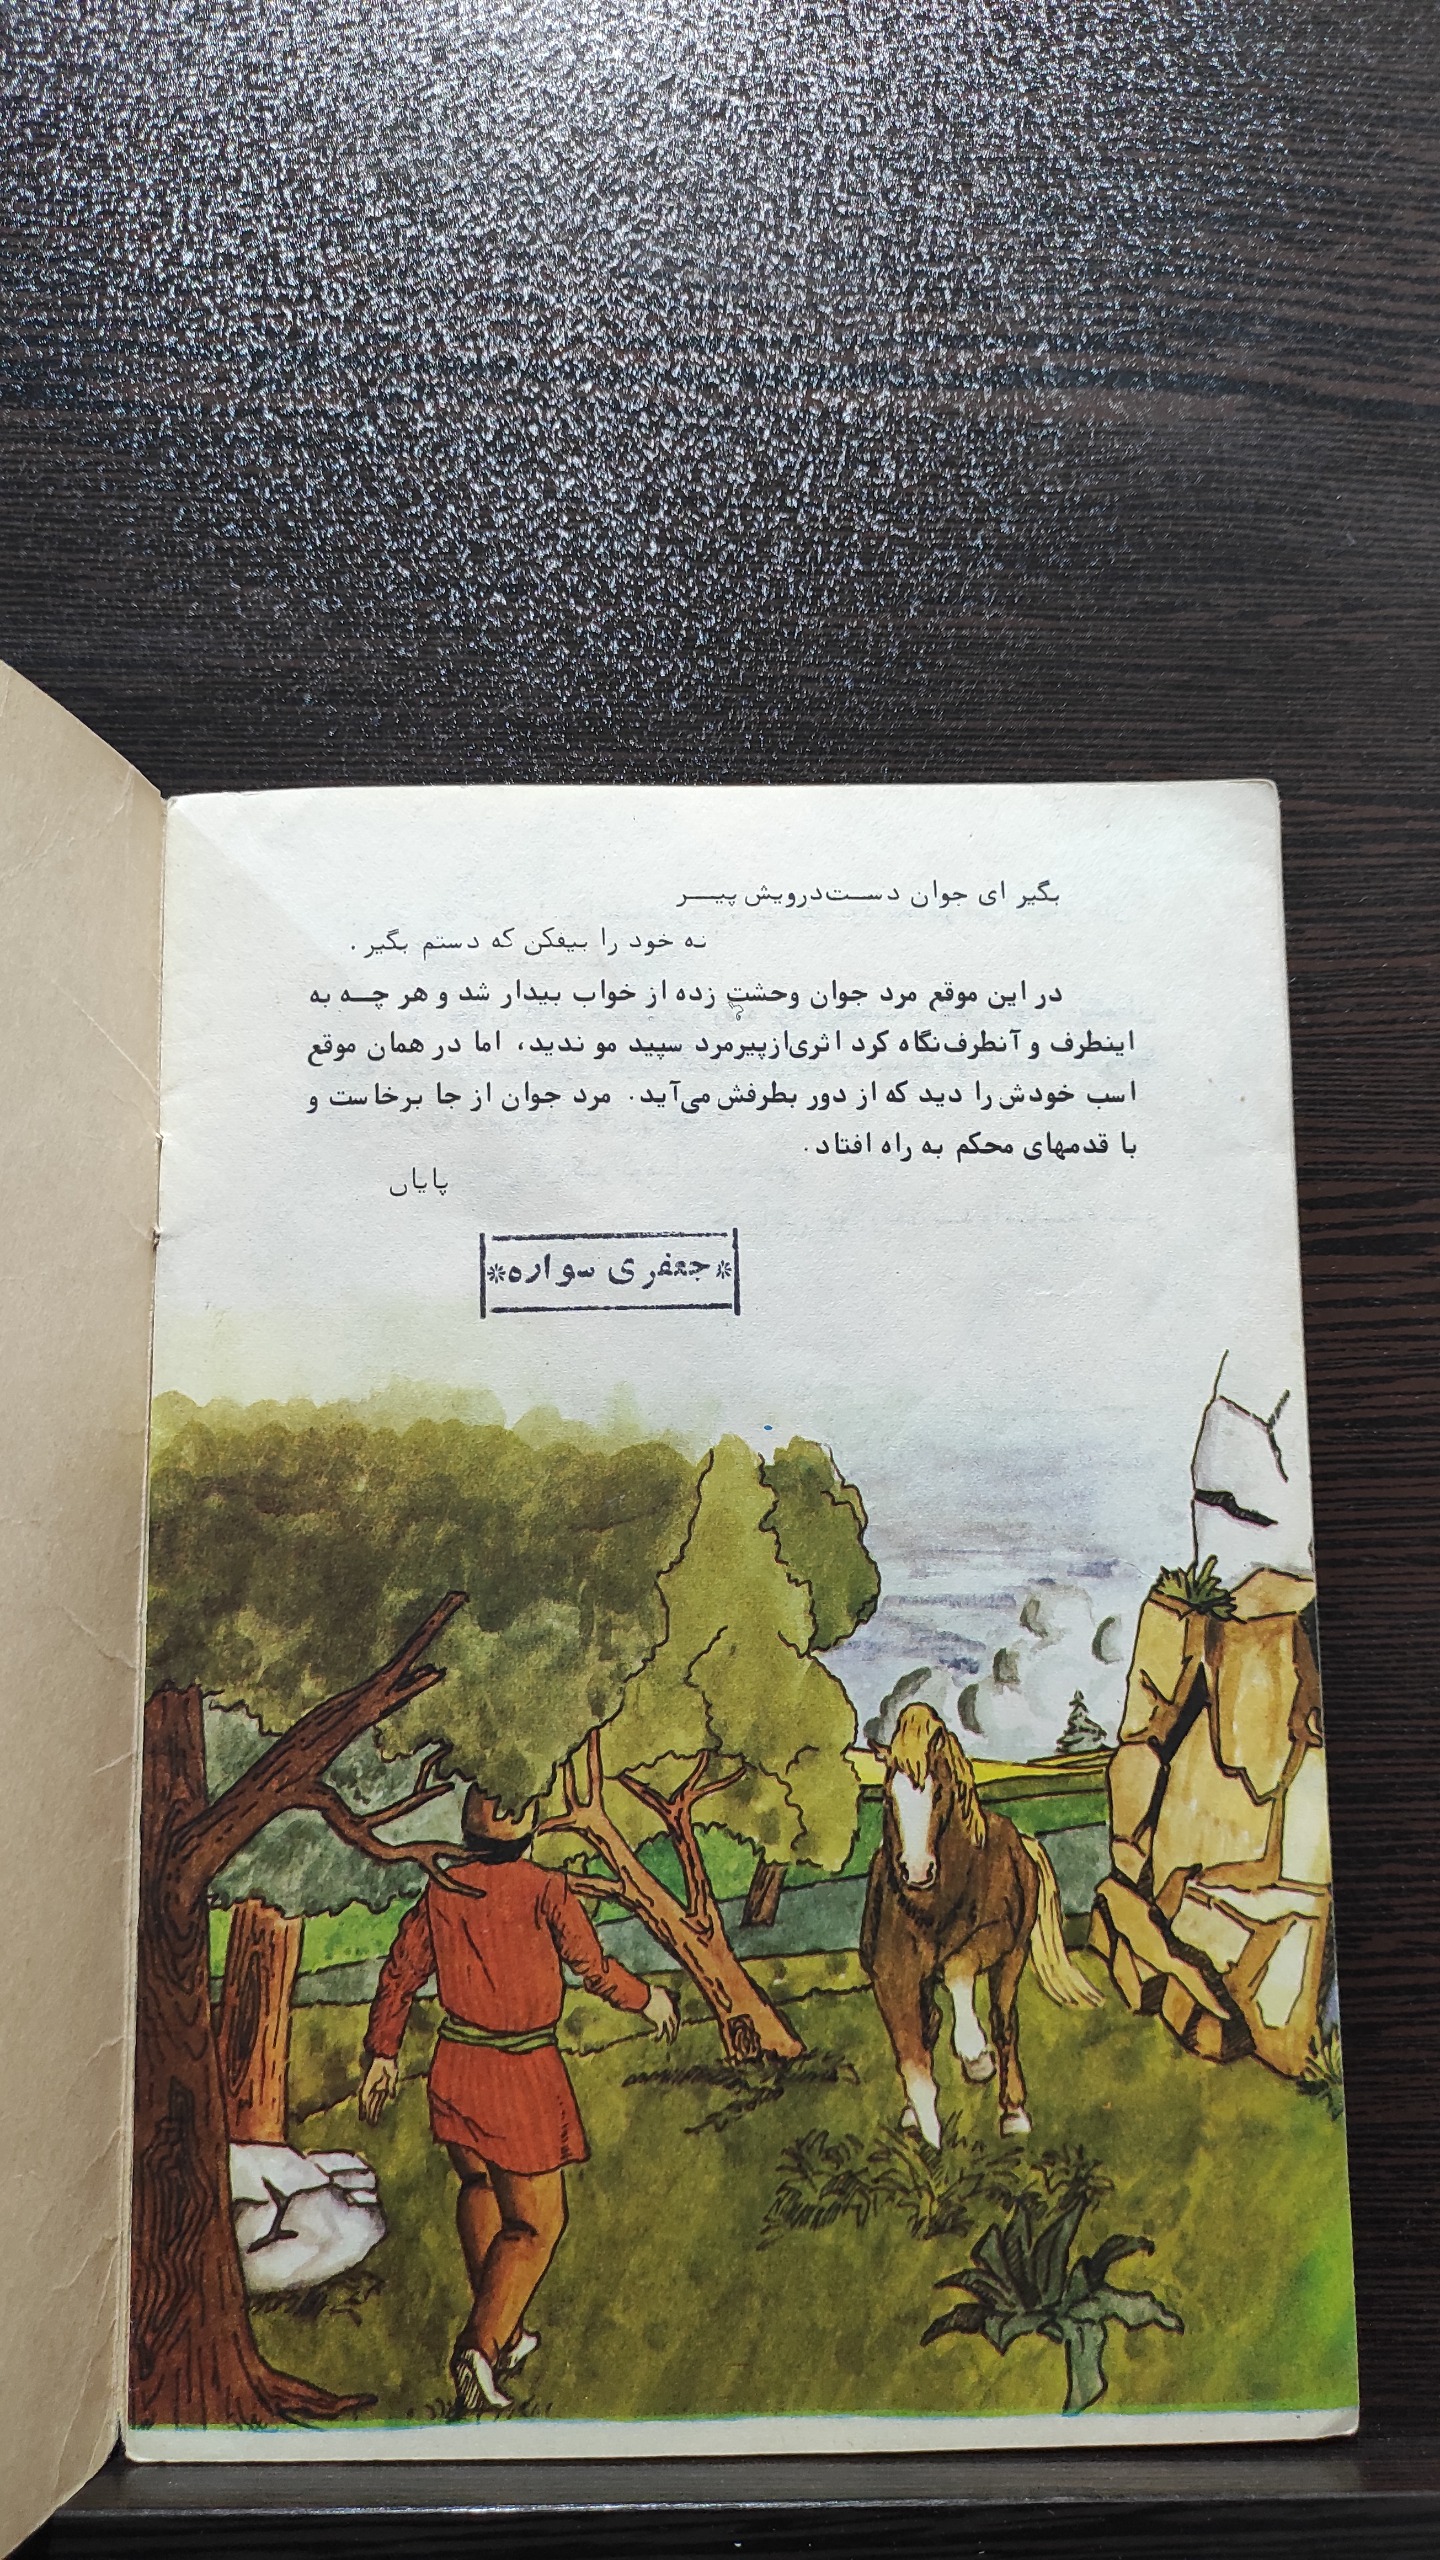 بگیر ای جوان دست درویش پیر
نه خود را بیفکن که دستم بگیر.
در این موقع مرد جوان وحشت زده از خواب بیدار شد و هر چه به
اینطرف و آنطرف نگاه کرد اثری از پیرمرد سپید مو ندید، اما در همان موقع
اسب خودش را دید که از دور بطرفش می‌آید. مرد جوان از جا برخاست و
با قدمهای محکم به راه افتاد.
پایان
*جعفری سواره*